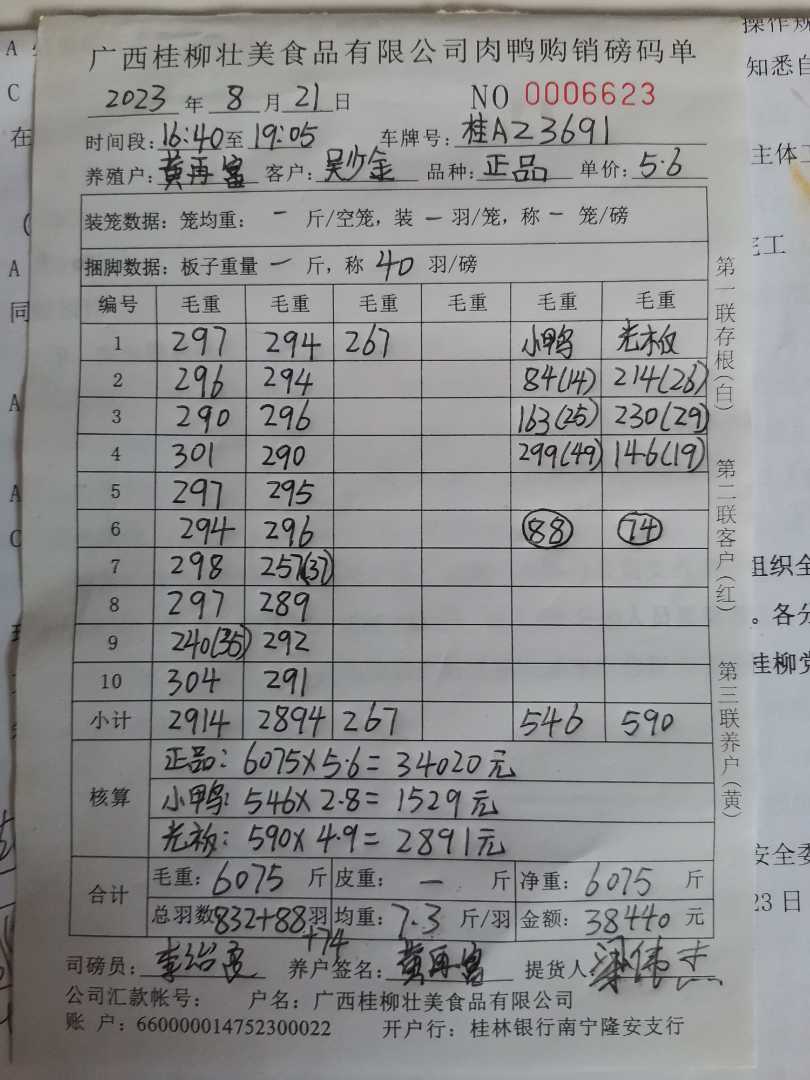 广西桂柳壮美食品有限公司肉鸭购销磅码单
2023 年 8 月 21 日 NO 0006623
时间段: 16:40 至 19:05 车牌号: 桂AZ3691
养殖户: 黄再富 客户: 吴少金 品种: 正品 单价: 5.6
装笼数据: 笼均重: 一 斤/空笼, 装 一 羽/笼, 称 一 笼/磅
捆脚数据: 板子重量 一 斤, 称 40 羽/磅
编号 毛重 毛重 毛重 毛重 毛重 毛重
1 297 294 267 小鸭 光板
2 296 294 84(14) 214(26)
3 290 296 163(25) 230(29)
4 301 290 299(49) 146(19)
5 297 295
6 294 296 88 74
7 298 257(37)
8 297 289
9 240(35) 292
10 304 291
小计 2914 2894 267 546 590
核算
正品: 6075×5.6= 34020元
小鸭: 546×2.8= 1529元
光板: 590×4.9= 2891元
合计
毛重: 6075 斤 皮重: 一 斤 净重: 6075 斤
总羽数 832+88 羽 均重: 7.3 斤/羽 金额: 38440 元
+74
司磅员: 养户签名: 黄再富 提货人 梁伟杰
公司汇款帐号: 户名: 广西桂柳壮美食品有限公司
账 户: 660000014752300022 开户行: 桂林银行南宁隆安支行
第一联存根(白)
第二联客户(红)
第三联养户(黄)
操作规
知悉自
主体工
完工
组织全
。各分
桂柳党
安全委
23日
A
C
在
(
A
同
A
A
C